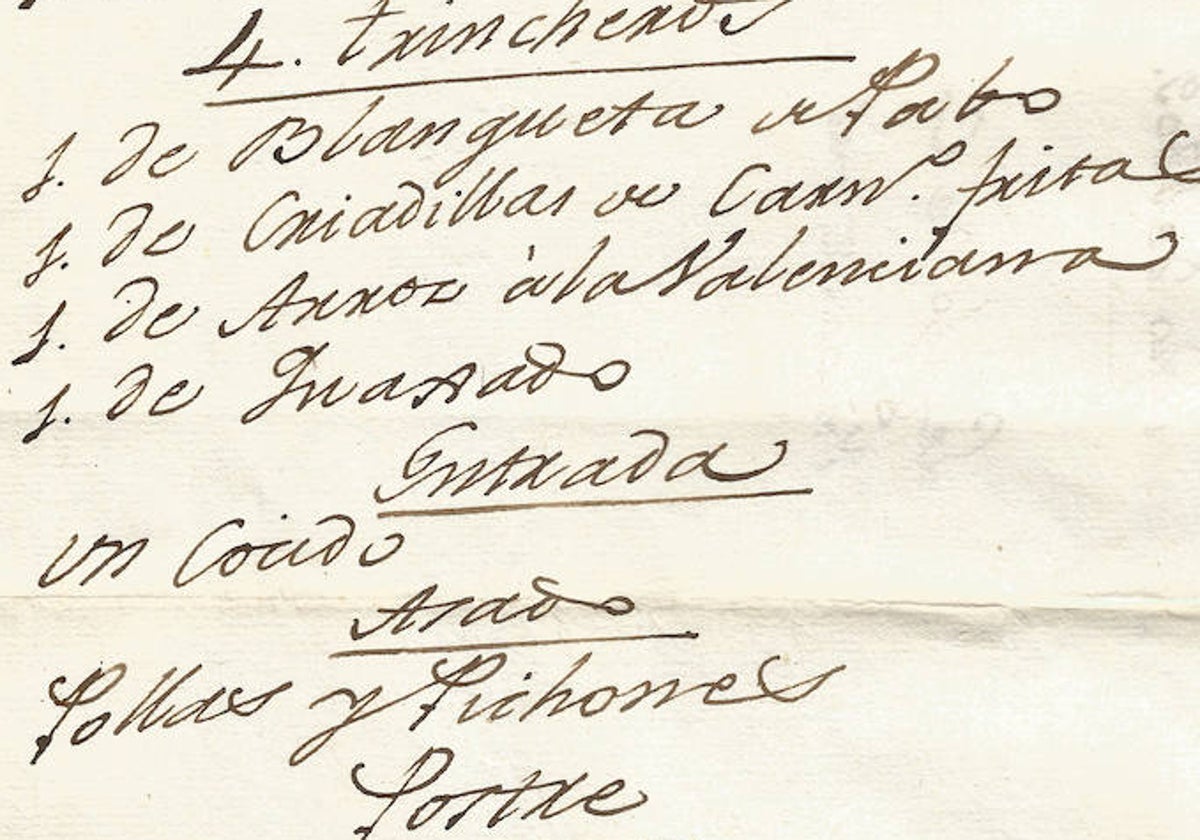 4. trincheros
1. de Blangueta de Pabo
1. de Criadillas de Carn.º fritas
1. de Arroz à la Valenciana
1. de Guasado
Entrada
Un Cocido
Asado
Pollas y Pichones
Postre